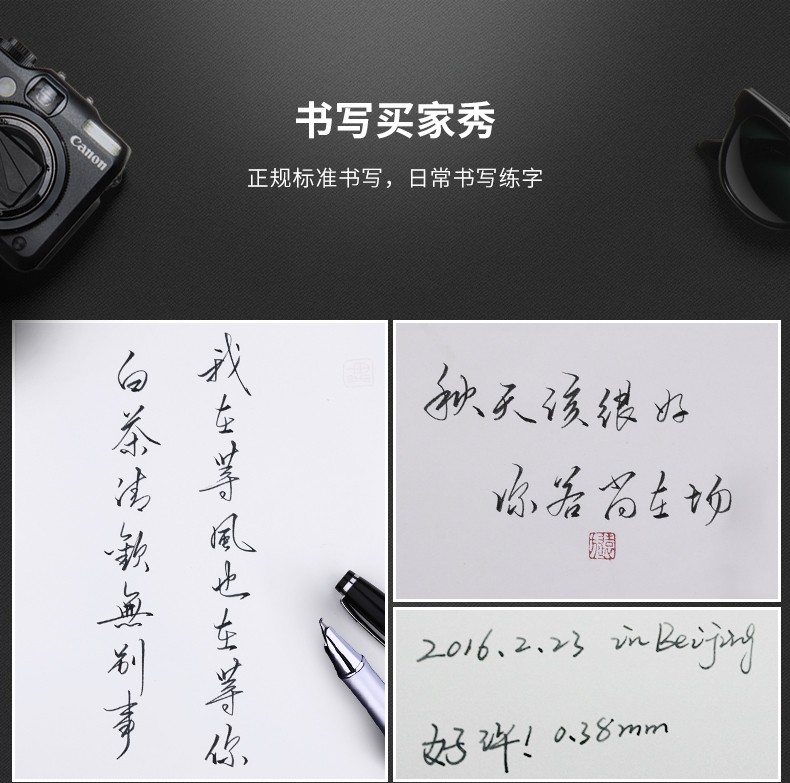 Canon
书写买家秀
正规标准书写，日常书写练字
白茶清歡無别事
我在等風也在等你
秋天该很好
你若尚在场
2016.2.23 in Beijing
0.38mm